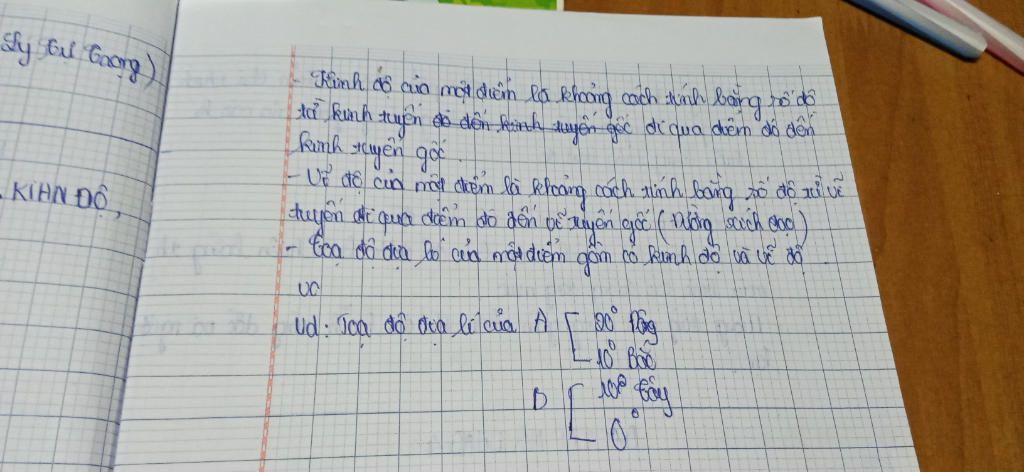 sly tư tưởng)
KIAN ĐỘ,
- Kinh độ của một điểm là khoảng cách tính bằng số độ
từ kinh tuyến đó đến kinh tuyến gốc đi qua điểm đó đến
kinh tuyến gốc.
- Vĩ độ của một điểm là khoảng cách tính bằng số độ từ vĩ
tuyến đi qua điểm đó đến vĩ tuyến gốc (đường xích đạo)
- Toạ độ địa lí của một điểm gồm có kinh độ và vĩ độ.
VC
Vd: Toạ độ địa lí của A [ 20° Đông
10° Bắc
D [ 10° Tây
0°